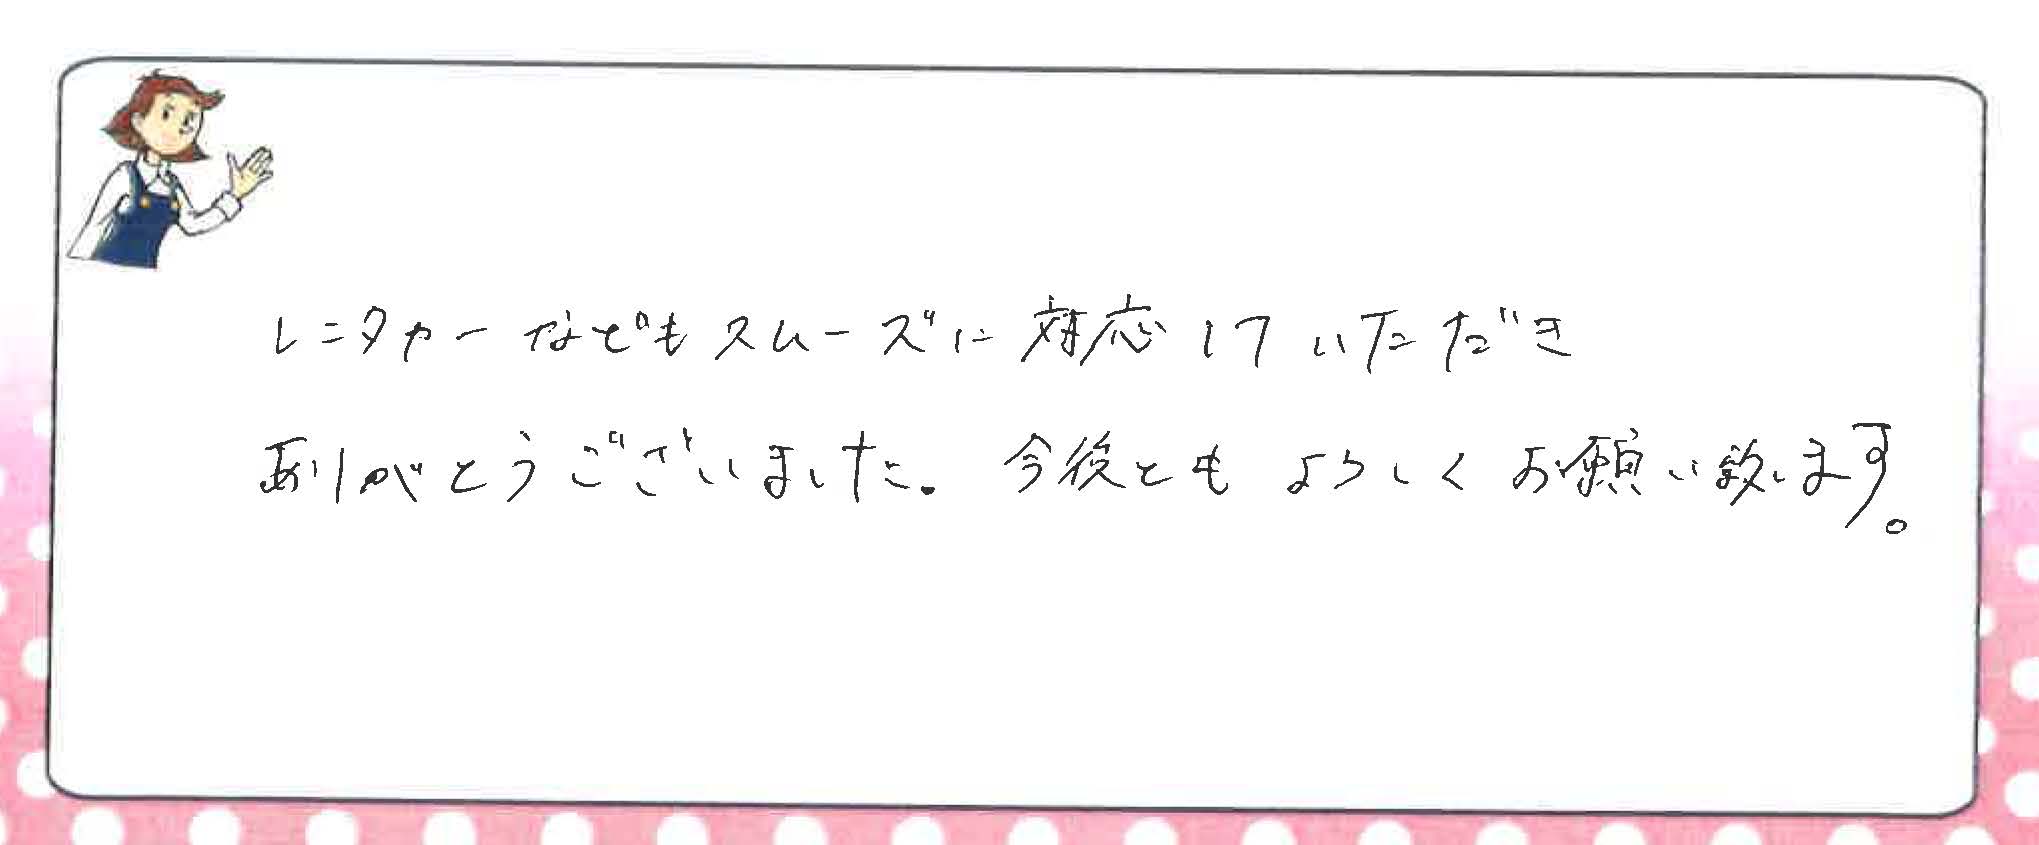 レンタカーなどもスムーズに対応していただき
ありがとうございました。今後とも よろしくお願い致します。